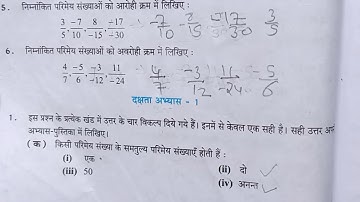 5. निम्नांकित परिमेय संख्याओं को आरोही क्रम में लिखिए :
3/5, -7/10, 8/-15, -17/-30 -7/10 -8/15 -17/-30 3/5
6. निम्नांकित परिमेय संख्याओं को अवरोही क्रम में लिखिए :
4/7, -5/6, -3/12, 11/-24 4/7 -3/12 11/-24 -5/6
दक्षता अभ्यास - 1
1. इस प्रश्न के प्रत्येक खंड में उत्तर के चार विकल्प दिये गये हैं। इनमें से केवल एक सही है। सही उत्तर
अभ्यास-पुस्तिका में लिखिए।
(क) किसी परिमेय संख्या के समतुल्य परिमेय संख्याएँ होती हैं :
(i) एक (ii) दो
(iii) 50 (iv) अनन्त